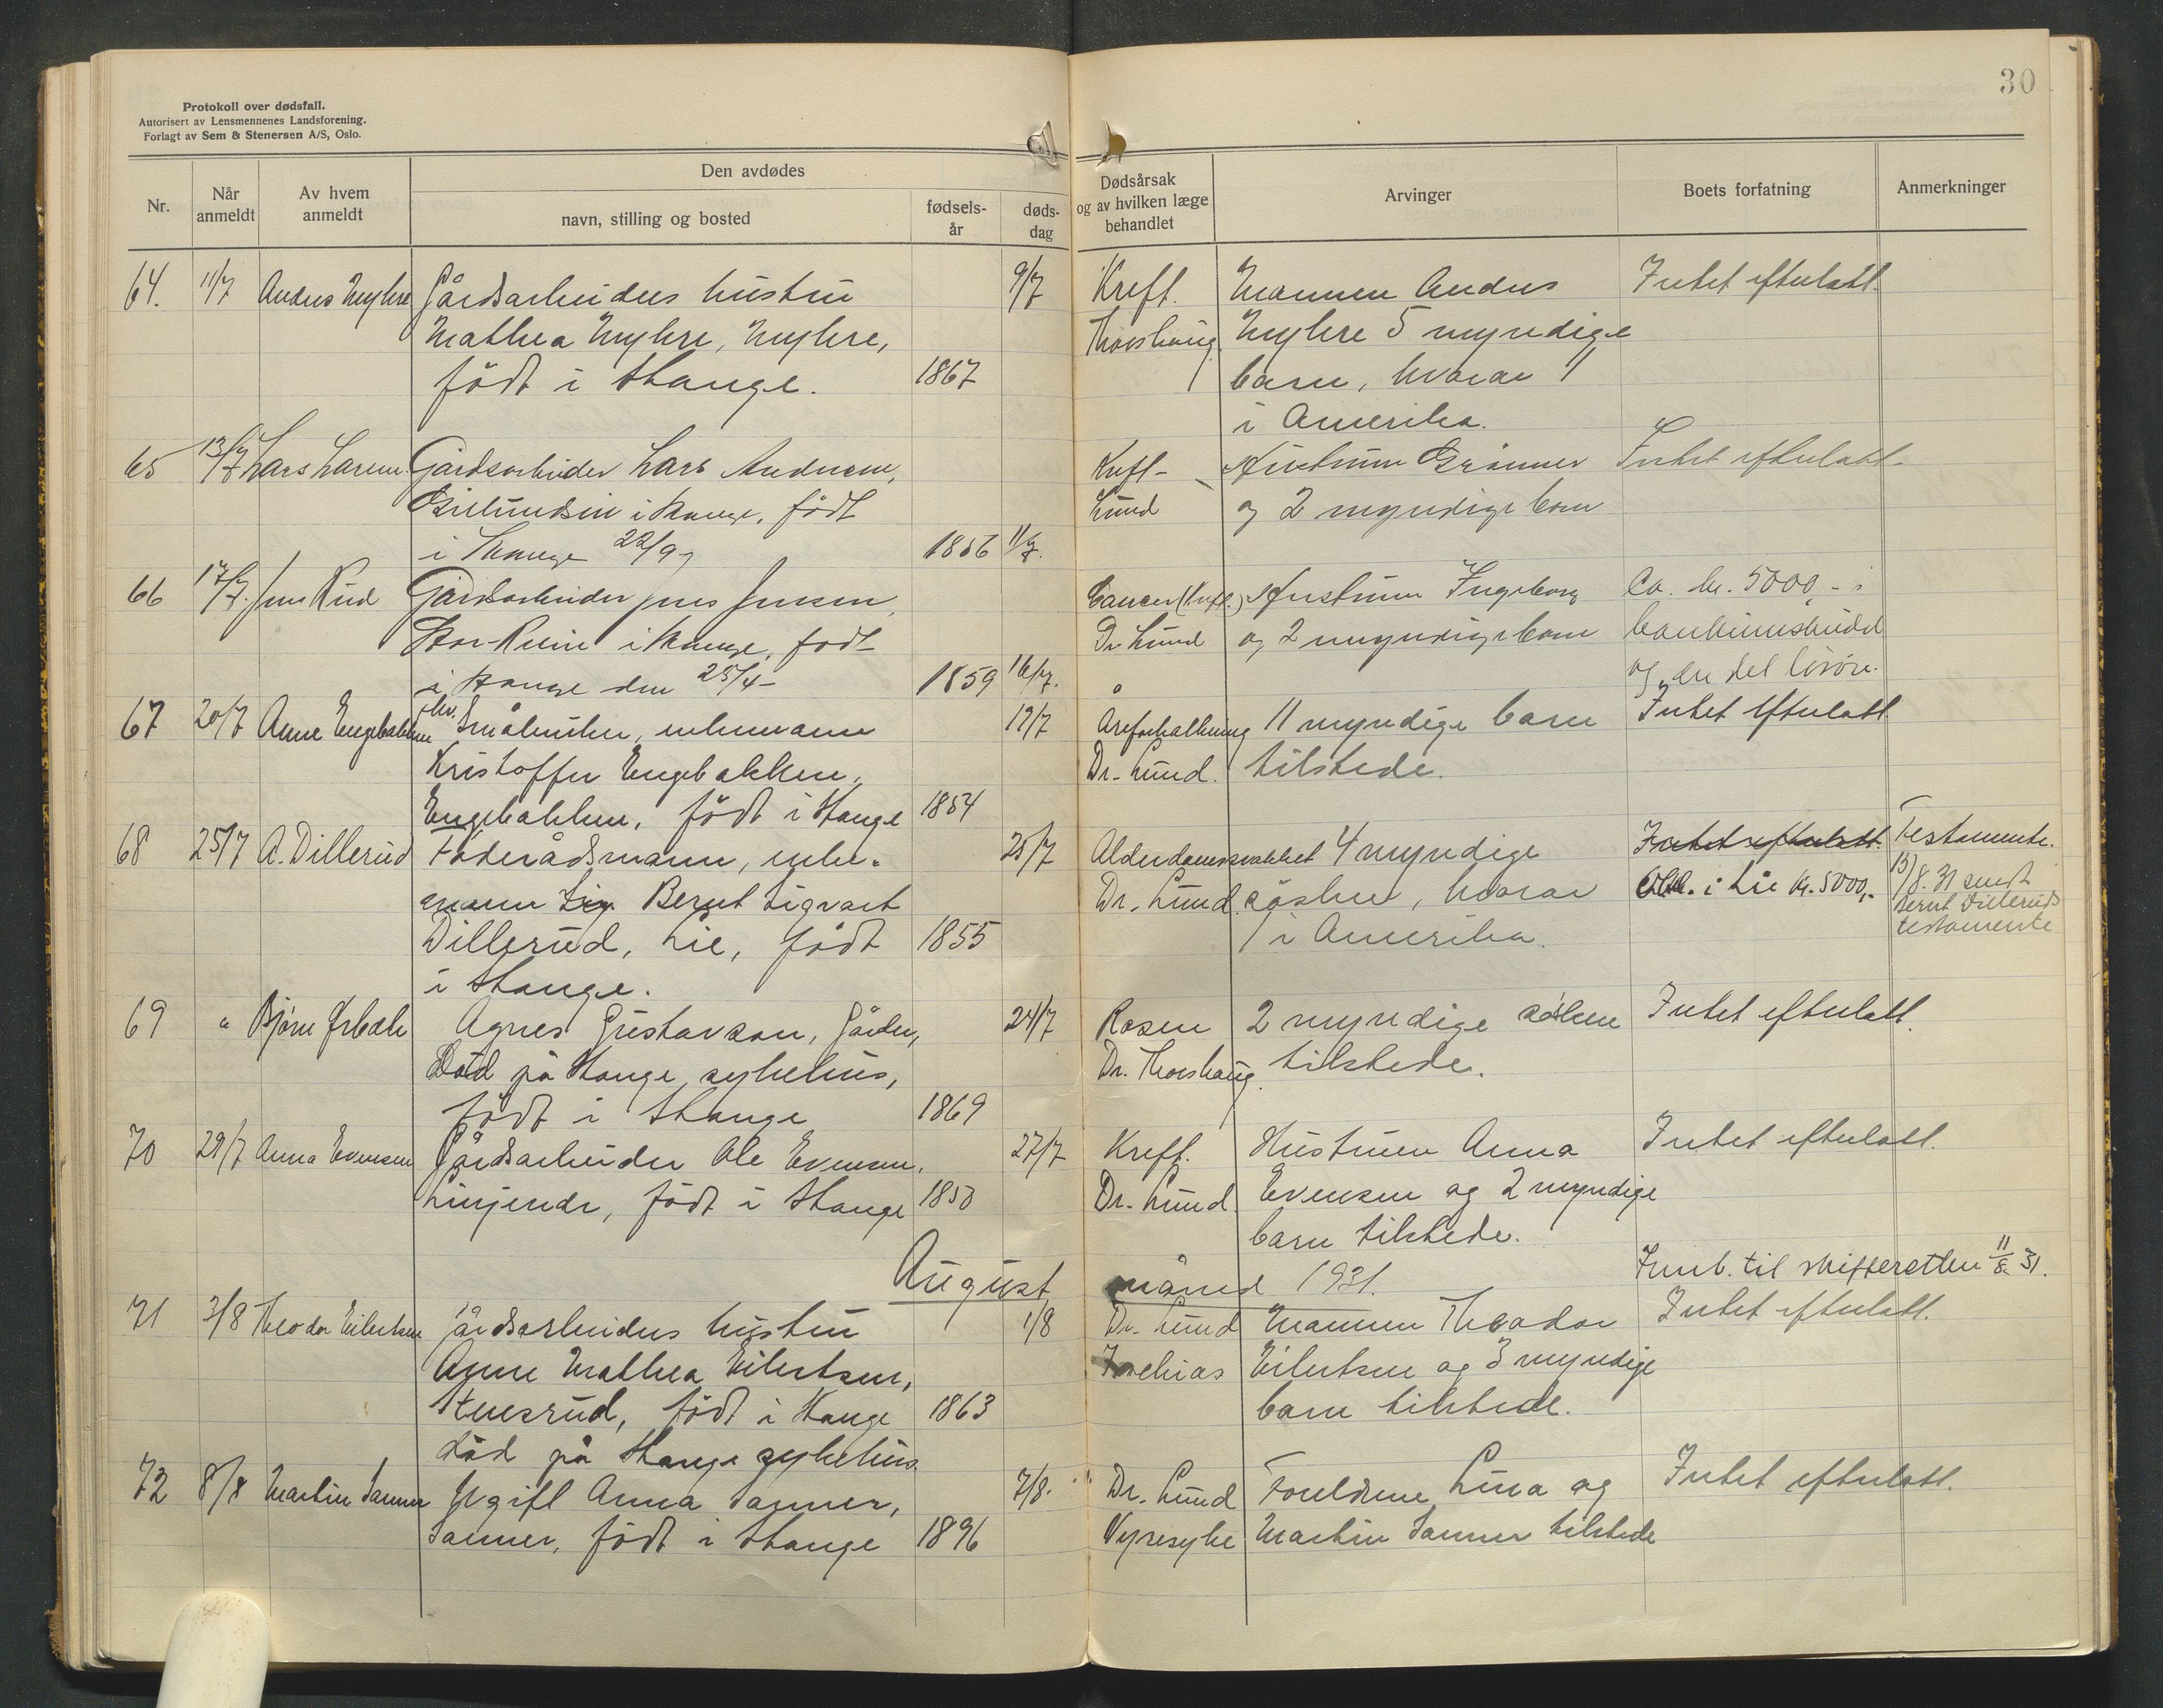 30
Protokoll over dødsfall.
Autorisert av Lensmennenes Landsforening.
Forlagt av Sem & Stenersen A/S, Oslo.
Nr.
Når anmeldt
Av hvem anmeldt
Den avdødes
navn, stilling og bosted
fødsels-år
døds-dag
Dødsårsak og av hvilken læge behandlet
Arvinger
Boets forfatning
Anmerkninger
64. 11/7 Anders Myhre Gårdsarbeiders hustru 9/7 Kreft. Mannen Anders Intet efterlatt.
Mathea Myhre, Myhre, Thorshaug. Myhre 5 myndige
født i Stange. 1867 barn, hvorav 1
i Amerika.
65 13/7 Lars Larsen Gårdsarbeider Lars Andersen, Kreft- Hustruen Intet efterlatt.
i Stange, født Lund og 2 myndige barn
i Stange 22/9 1856 11/7.
66 17/7. Jens Rud Gårdsarbeider Jens Jensen, Cancer (Kreft.) Hustruen Ingeborg Ca. kr. 5000,- i
i Stange, født Dr. Lund og 2 myndige barn bankinnskudd
i Stange den 25/4- 1859 16/7. og en del løsøre.
67 20/7 Anne Engebakken fhv. Småbruker, enkemann 19/7 Åreforkalkning 11 myndige barn Intet efterlatt
Kristoffer Engebakken, Dr. Lund. tilstede.
Engebakken, født i Stange 1854
68 25/7 A. Dillerud Føderådsmann, enke- 25/7 Alderdomssvakhet 4 myndige Intet efterlatt. Testamente.
mann Sig. Bernt Sigvart Dr. Lund. søsken, hvorav Obl. i Lie kr. 5000,- 15/8. 31 sendt
Dillerud, Lie, født 1855 1 i Amerika. Bernt Dilleruds
i Stange. testamente
69 " Bjørn Ørbæk Agnes Gustavson, Gården, 24/7 Rosen 2 myndige søsken Intet efterlatt.
Død på Stange sykehus, Dr. Thorshaug. tilstede.
født i Stange 1869
70 29/7 Anna Evensen Gårdsarbeider Ole Evensen, 27/7 Kreft. Hustruen Anna Intet efterlatt.
født i Stange 1850 Dr. Lund. Evensen og 2 myndige
barn tilstede.
August måned 1931. Innb. til skifteretten 11/8. 31.
71 3/8 Theodor Eilertsen Gårdsarbeiders hustru 1/8 Dr. Lund Mannen Theodor Intet efterlatt.
Anne Mathea Eilertsen, Ischias Eilertsen og 3 myndige
Stensrud, født i Stange 1863 barn tilstede.
død på Stange sykehus.
72 8/8 Martin Sanner Ugift Anna Sanner, 7/8. Dr. Lund Foreldrene Lina og Intet efterlatt.
Sanner, født i Stange 1896 Nyresyke Martin Sanner tilstede